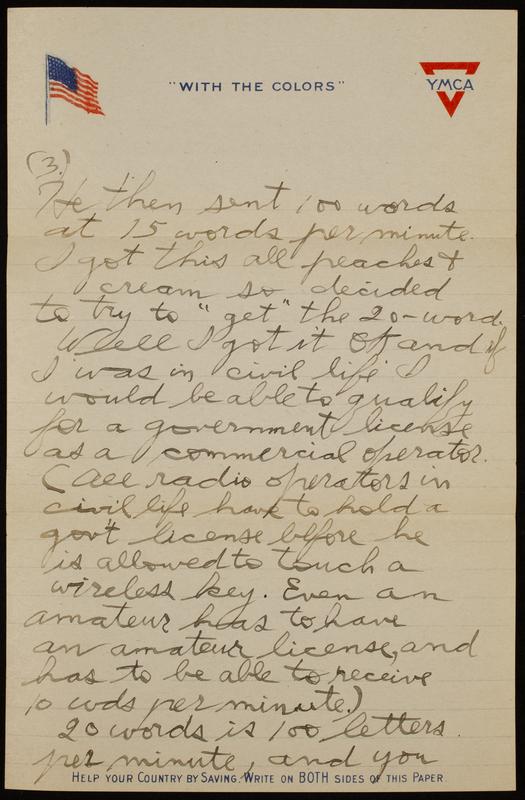 "WITH THE COLORS"
YMCA
(3.)
He then sent 100 words
at 15 words per minute.
I got this all peaches &
cream so decided
to try to "get" the 20-word.
Well I got it OK and if
I was in civil life I
would be able to qualify
for a government license
as a commercial operator.
(All radio operators in
civil life have to hold a
gov't license before he
is allowed to touch a
wireless key. Even an
amateur has to have
an amateur license, and
has to be able to receive
10 wds per minute.)
20 words is 100 letters
per minute, and you
HELP YOUR COUNTRY BY SAVING. WRITE ON BOTH SIDES OF THIS PAPER.